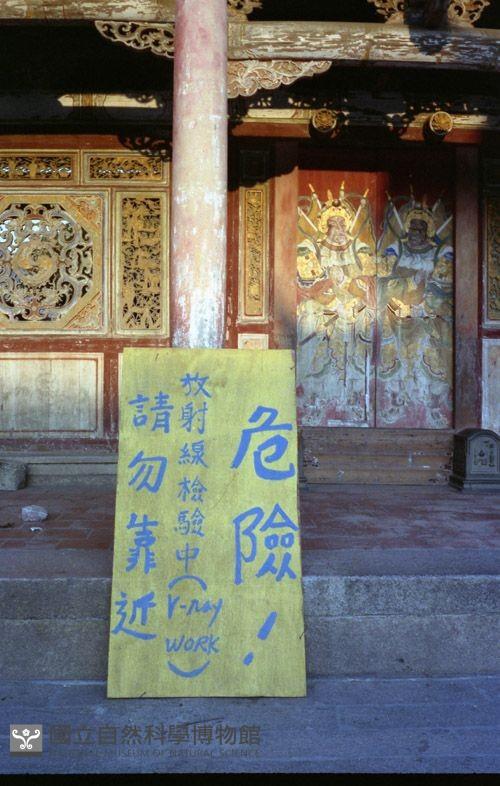 危險！
放射線檢驗中(r-ray
WORK)
請勿靠近
國立自然科學博物館
NATIONAL MUSEUM OF NATURAL SCIENCE